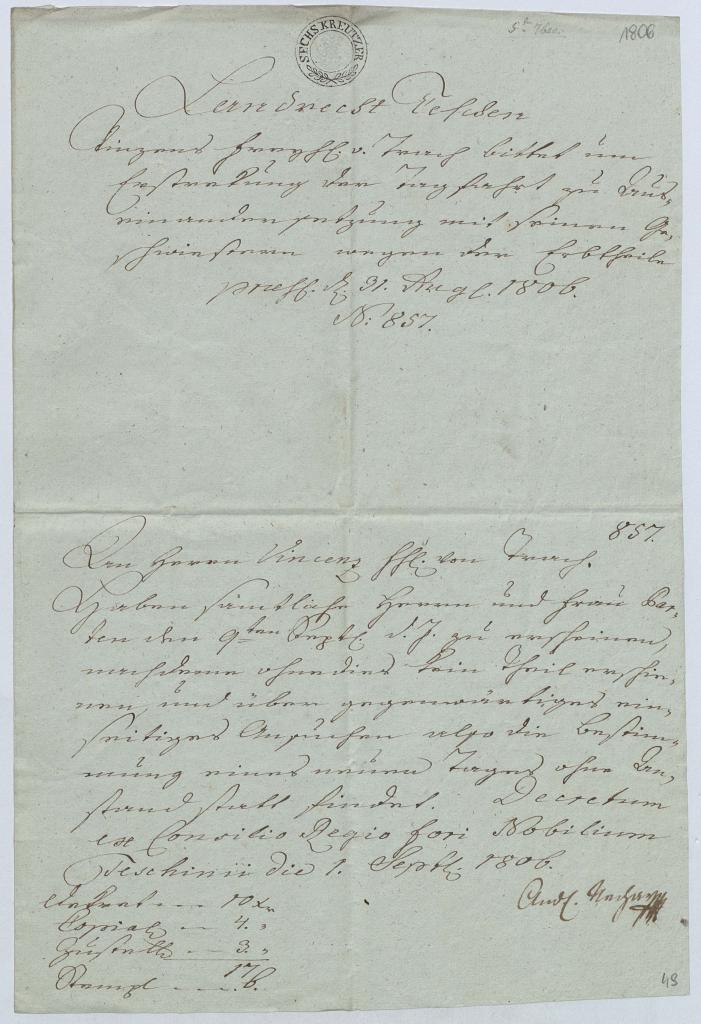 SECHS KREUTZER
1806
Landrecht Teschen
Vinzens Freyhl. v. Trach bittet um
Erstrekung der Tagfahrt zu Aus-
einandersetzung mit seinen Ge-
schwiestern wegen der Erbtheile
praes. d. 31. Aug. 1806.
N: 857.
857.
An Herrn Vincenz Fhl. von Trach.
Haben sämtliche Herrn und Frau Par-
ten den 9ten Septl. d. J. zu erscheinen,
nachdeme ohnedies kein Theil erschie-
nen, und über gegenwärtiges ein-
seitiges Ansuchen also die Bestim-
mung eines neuen Tages ohne An-
stand statt findet. Decretum
ex Consilio Regio fori Nobilium
Teschinii die 1. Septl. 1806.
10 xr
Copial 4. "
Zustell 3. "
17
Stempl 6.
49